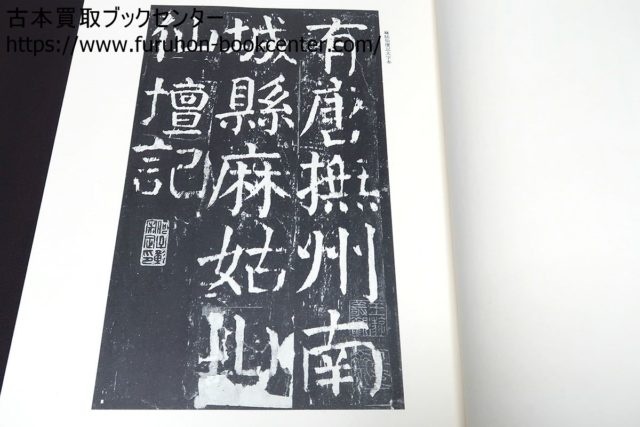 古本買取ブックセンター
https://www.furuhon-bookcenter.com/
有唐撫州南
城縣麻姑山
仙壇記